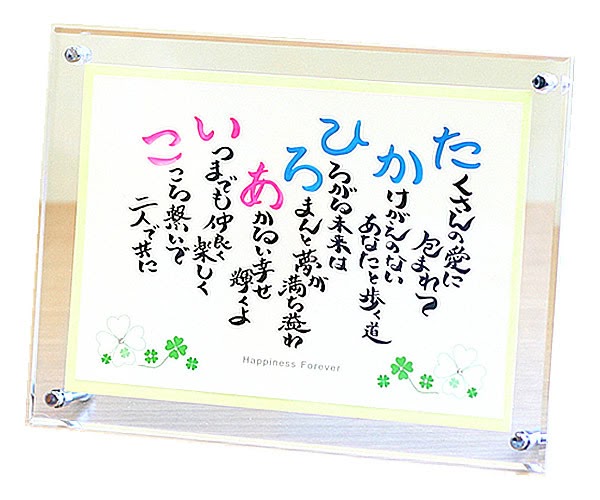 たくさんの愛に
包まれて
かけがえのない
あなたと歩く道
ひろがる未来は
ろまんと夢が
満ち溢れ
あかるい幸せ
輝くよ
いつまでも仲良く
楽しく
こころ繋いで
二人で共に
Happiness Forever